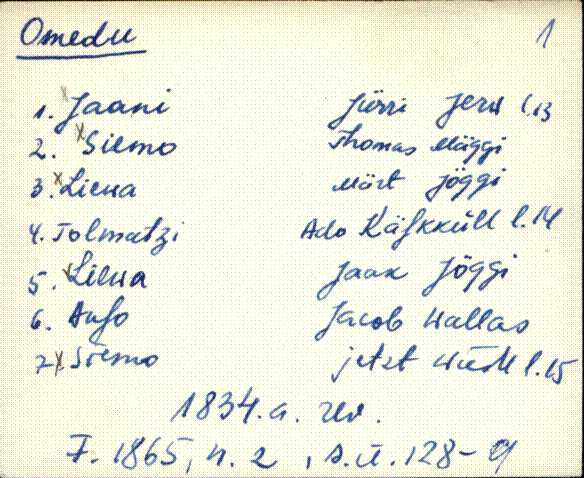 Omedu 1
1. Jaani Jürri Jerw l.13
2. Siemo Thomas Mäggi
3. Liewa Märt Jöggi
4. Tolmatzi Ado Käskküll l.14
5. Liewa Jaak Jöggi
6. Anso Jacob Wallas
7. Siemo jetzt wüst l.15
1834.a. rev.
F. 1865, n. 2, s.ü. 128-9